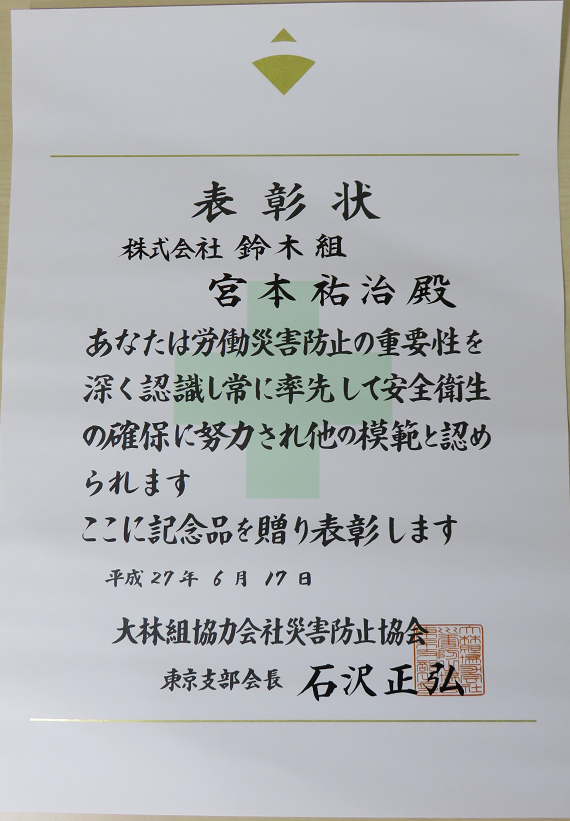 表彰状
株式会社 鈴木組
宮本祐治殿
あなたは労働災害防止の重要性を
深く認識し常に率先して安全衛生
の確保に努力され他の模範と認め
られます
ここに記念品を贈り表彰します
平成27年6月17日
大林組協力会社災害防止協会
東京支部会長 石沢正弘